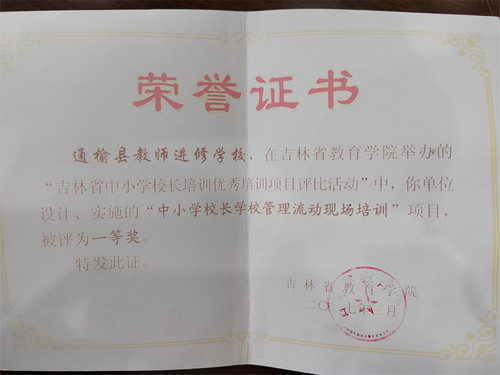 荣誉证书
通榆县教师进修学校，在吉林省教育学院举办的
“吉林省中小学校长培训优秀培训项目评比活动”中，你单位
设计、实施的“中小学校长学校管理流动现场培训”项目，
被评为一等奖。
特发此证。
吉林省教育学院
二〇一七年三月